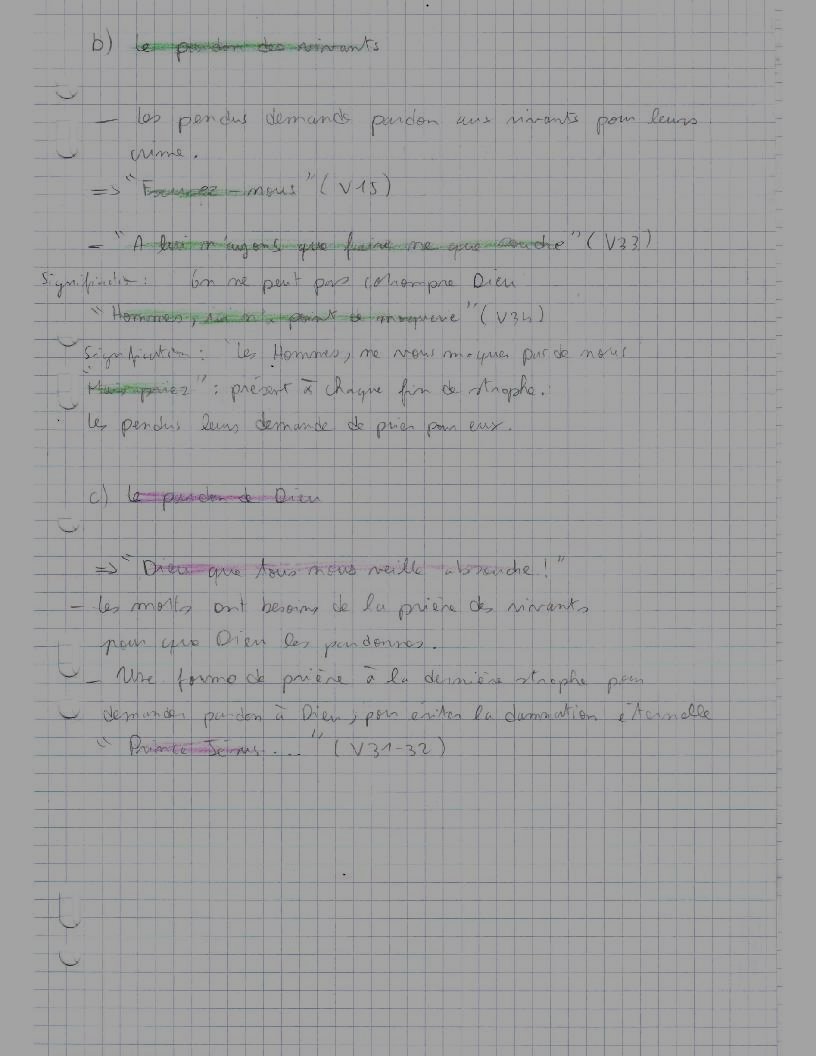 b) le pardon des vivants
- les pendus demande pardon aux vivants pour leurs
crime.
=> "Excusez-nous" (V15)
- "A lui n'ayons que faire ne que souche" (V33)
Signification : on ne peut pas corrompre Dieu
"Hommes, ici n'a point de moquerie" (V34)
Signification : les Hommes, ne vous moquer pas de nous
"Mais priez" : présent à chaque fin de strophe.
les pendus leurs demande de prier pour eux.
c) le pardon de Dieu
=> "Dieu que tous nous veille absoudre !"
- les morts ont besoins de la prière des vivants
pour que Dieu les pardonnes.
- Une forme de prière à la dernière strophe pour
demander pardon à Dieu, pour éviter la damnation éternelle
"Prince Jésus ..." (V31-32)